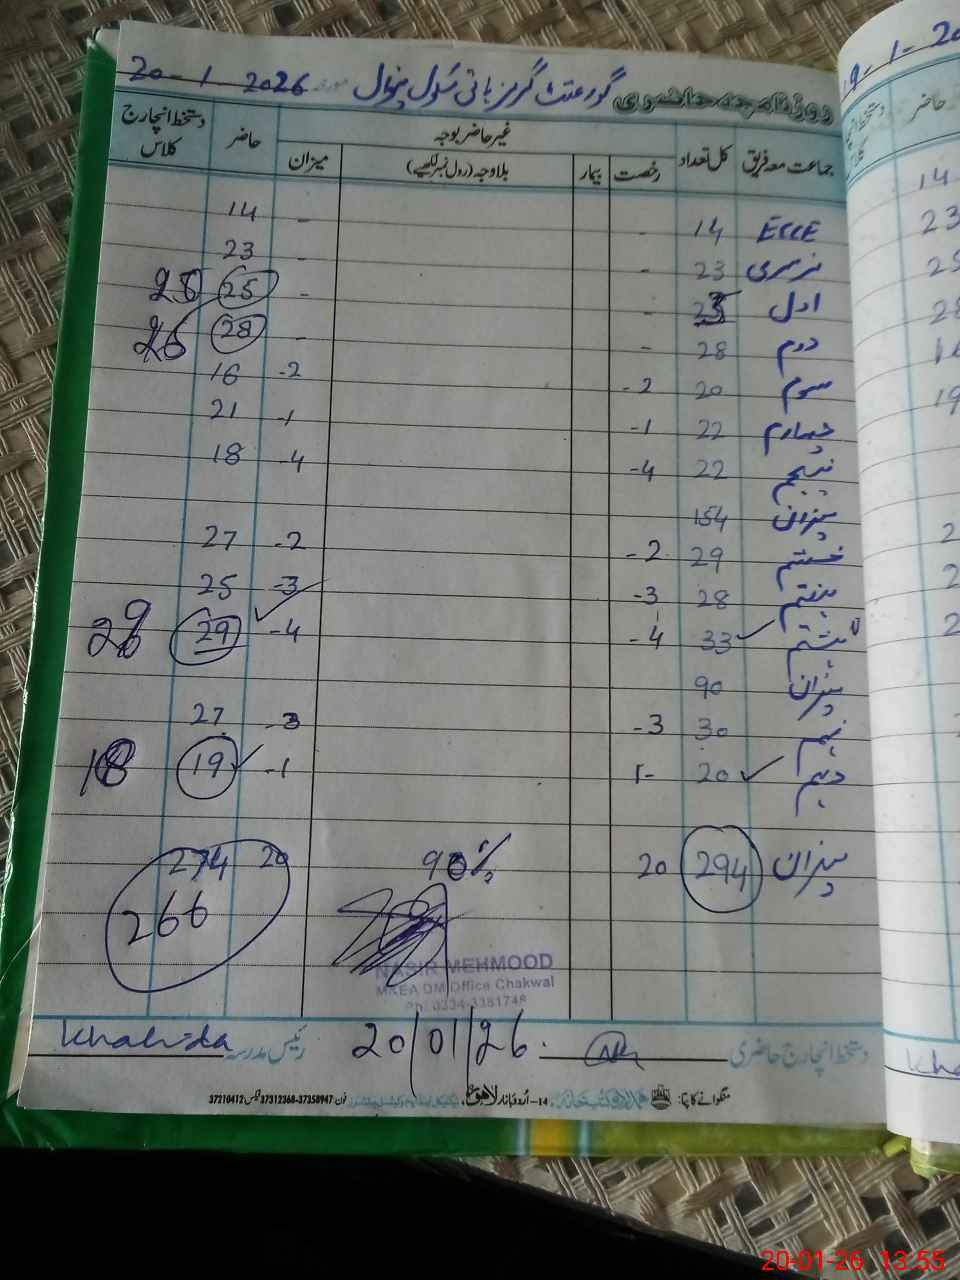 روزنامچہ حاضری گورنمنٹ گرلز ہائی سکول مورخہ 20-1-2026
جماعت معہ فریق کل تعداد غیر حاضر بوجہ حاضر دستخط انچارج کلاس
رخصت بیمار بلاوجہ (رول نمبر لکھیے) میزان
ECCE 14 - - 14
نرسری 23 - - 23
اول - - 25
دوم 28 - - 28 26
سوم 20 -2 -2 16
چہارم 22 -1 -1 21
پنجم 22 -4 -4 18
میزان 154
ششم 29 -2 -2 27
ہفتم 28 -3 -3 25
ہشتم 33 -4 -4 29
میزان 90
نہم 30 -3 -3 27
دہم 20 1- -1 19 18
میزان 294 20 90% 20 274
266
NASIR MEHMOOD
MAEA DM Office Chakwal
Ph: 0334-3381748
دستخط انچارج حاضری 20/01/26. رئیس مدرسہ Khalida
منگوانے کا پتا: 14-اردو بازار لاہور فون 37312368-37358947 فیکس 37210412
19-1-20
حاضر
14
23
25
28
16
19
20-01-26 13:55